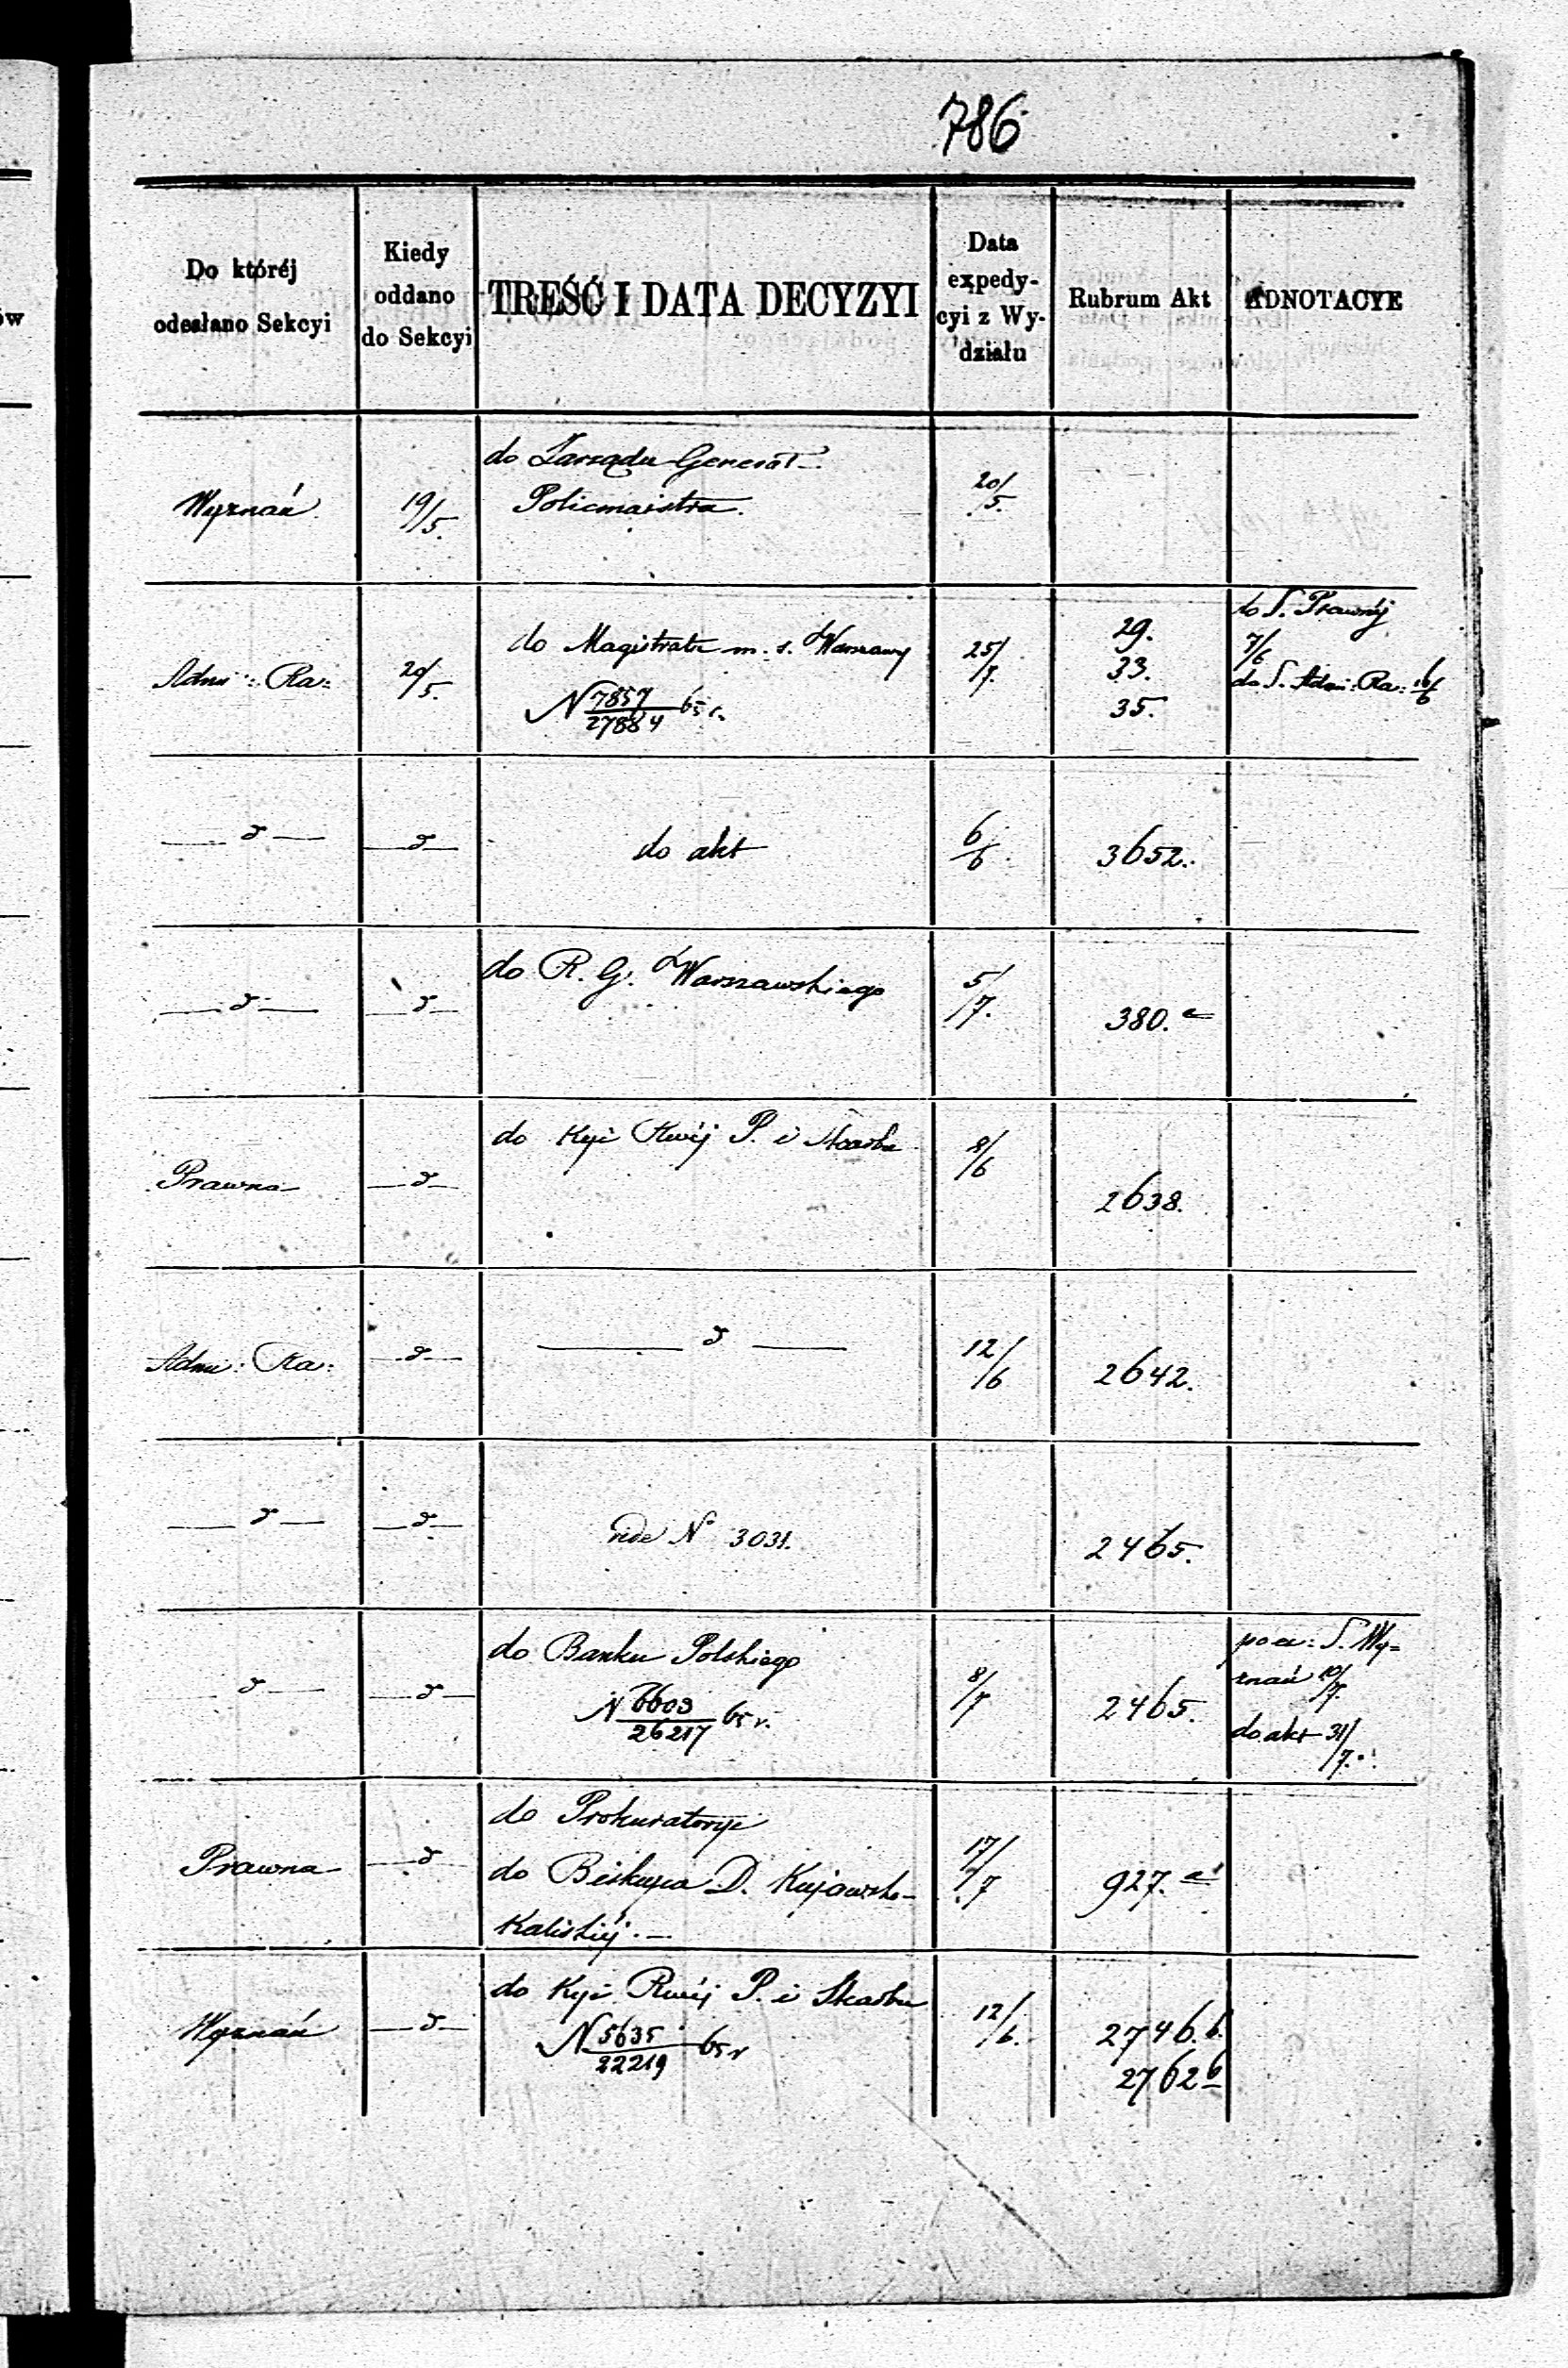 786
Do któréj
odesłano Sekcyi
Kiedy
oddano
do Sekcyi
TREŚĆ I DATA DECYZYI
Data
expedy-
cyi z Wy-
działu
Rubrum Akt
ADNOTACYE
Wyznań
19/5.
do Zarządu Generał
Policmaistra.
20/5.
Adm: Ra:
20/5.
do Magistratu m. s. Warszawy
N 7857/27884 65 r.
25/7.
29.
33.
35.
do S. Prawnéj
7/6
do S. Adm: Ra: 16/6
— d —
— d —
do akt
6/6.
3652.
— d —
— d —
do R. G. Warszawskiego
5/7.
380. a
Prawna
— d —
do Kyi Rwéj P. i Skarbu
8/6
2638.
Adm: Ra:
— d —
— d —
12/6
2642.
— d —
— d —
vide No 3031.
2465.
— d —
— d —
do Banku Polskiego
N 6603/26217 65 r.
8/7
2465.
S. Wy=
znań 10/7.
do akt 31/7.
Prawna
— d —
do Prokuratoryi
do Biskupa D. Kujawsko-
Kaliskiéj. —
17/7
927. a
Wyznań
— d —
do Kyi Rwéj P. i Skarbu
N 5635/22219 65 r
12/6.
2746. b.
2762 b